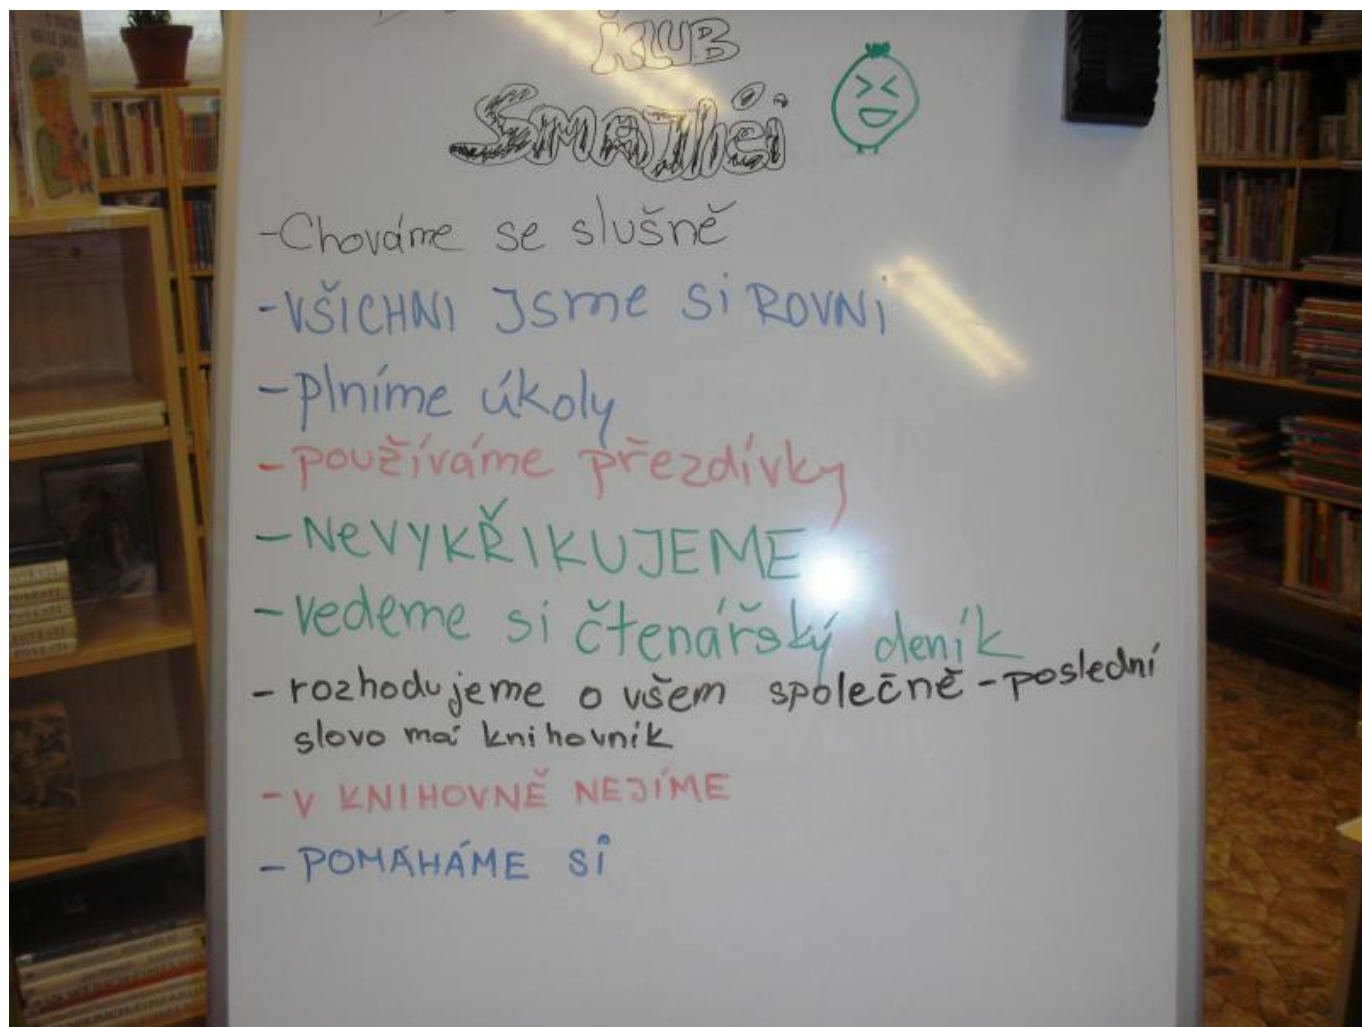 KLUB
- Chováme se slušně
- VŠICHNI JSme Si ROVNi
- plníme úkoly
- používáme přezdívky
- NeVYKŘIKUJEME
- vedeme si čtenářský deník
- rozhodujeme o všem společně - poslední
slovo má knihovník
- V KNIHOVNĚ NEJÍME
- POMÁHÁME Si